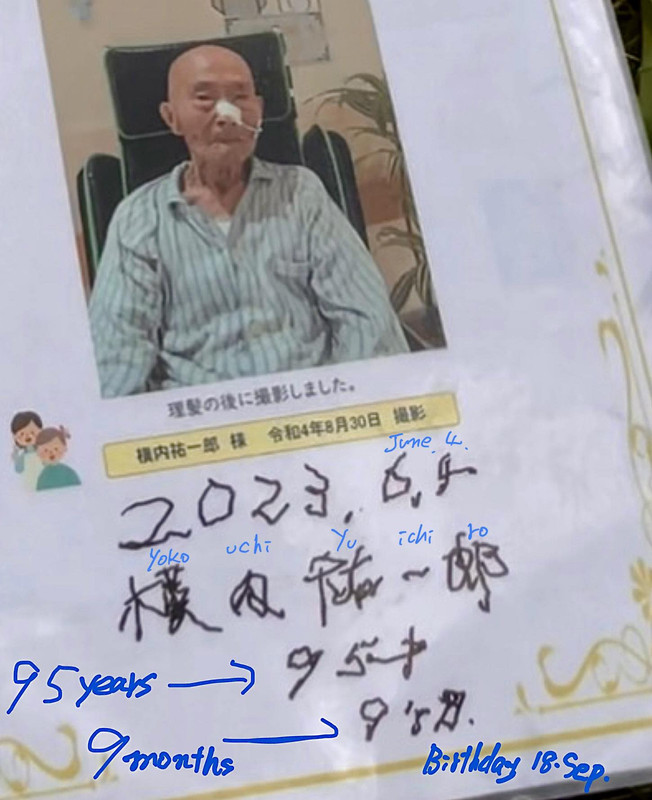 理髪の後に撮影しました。
横内祐一郎 様 令和4年8月30日 撮影
June. 4.
2023. 6. 4
Yoko uchi Yu ichi ro
横内祐一郎
95 years → 95才
9 months → 9ヶ月.
Birthday 18. Sep.